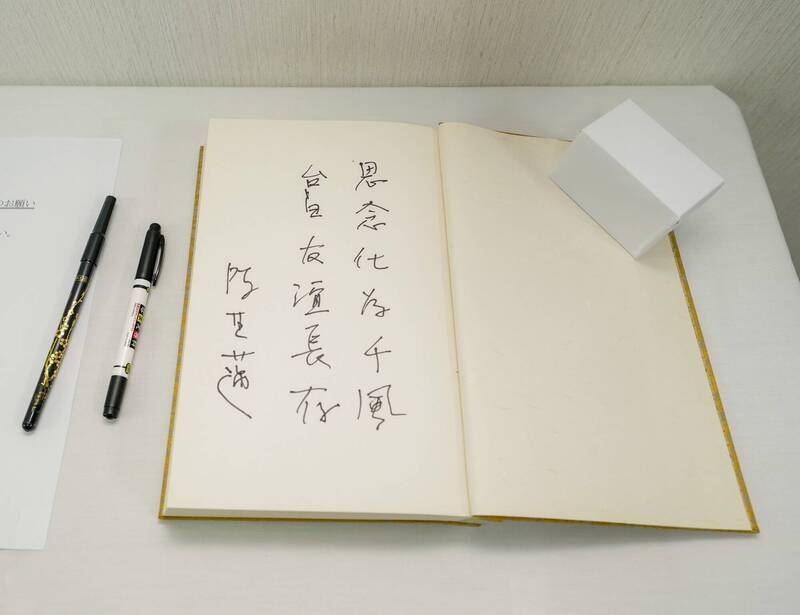 思念化為千風
台日友誼長存
陳其邁
のお願い
い。